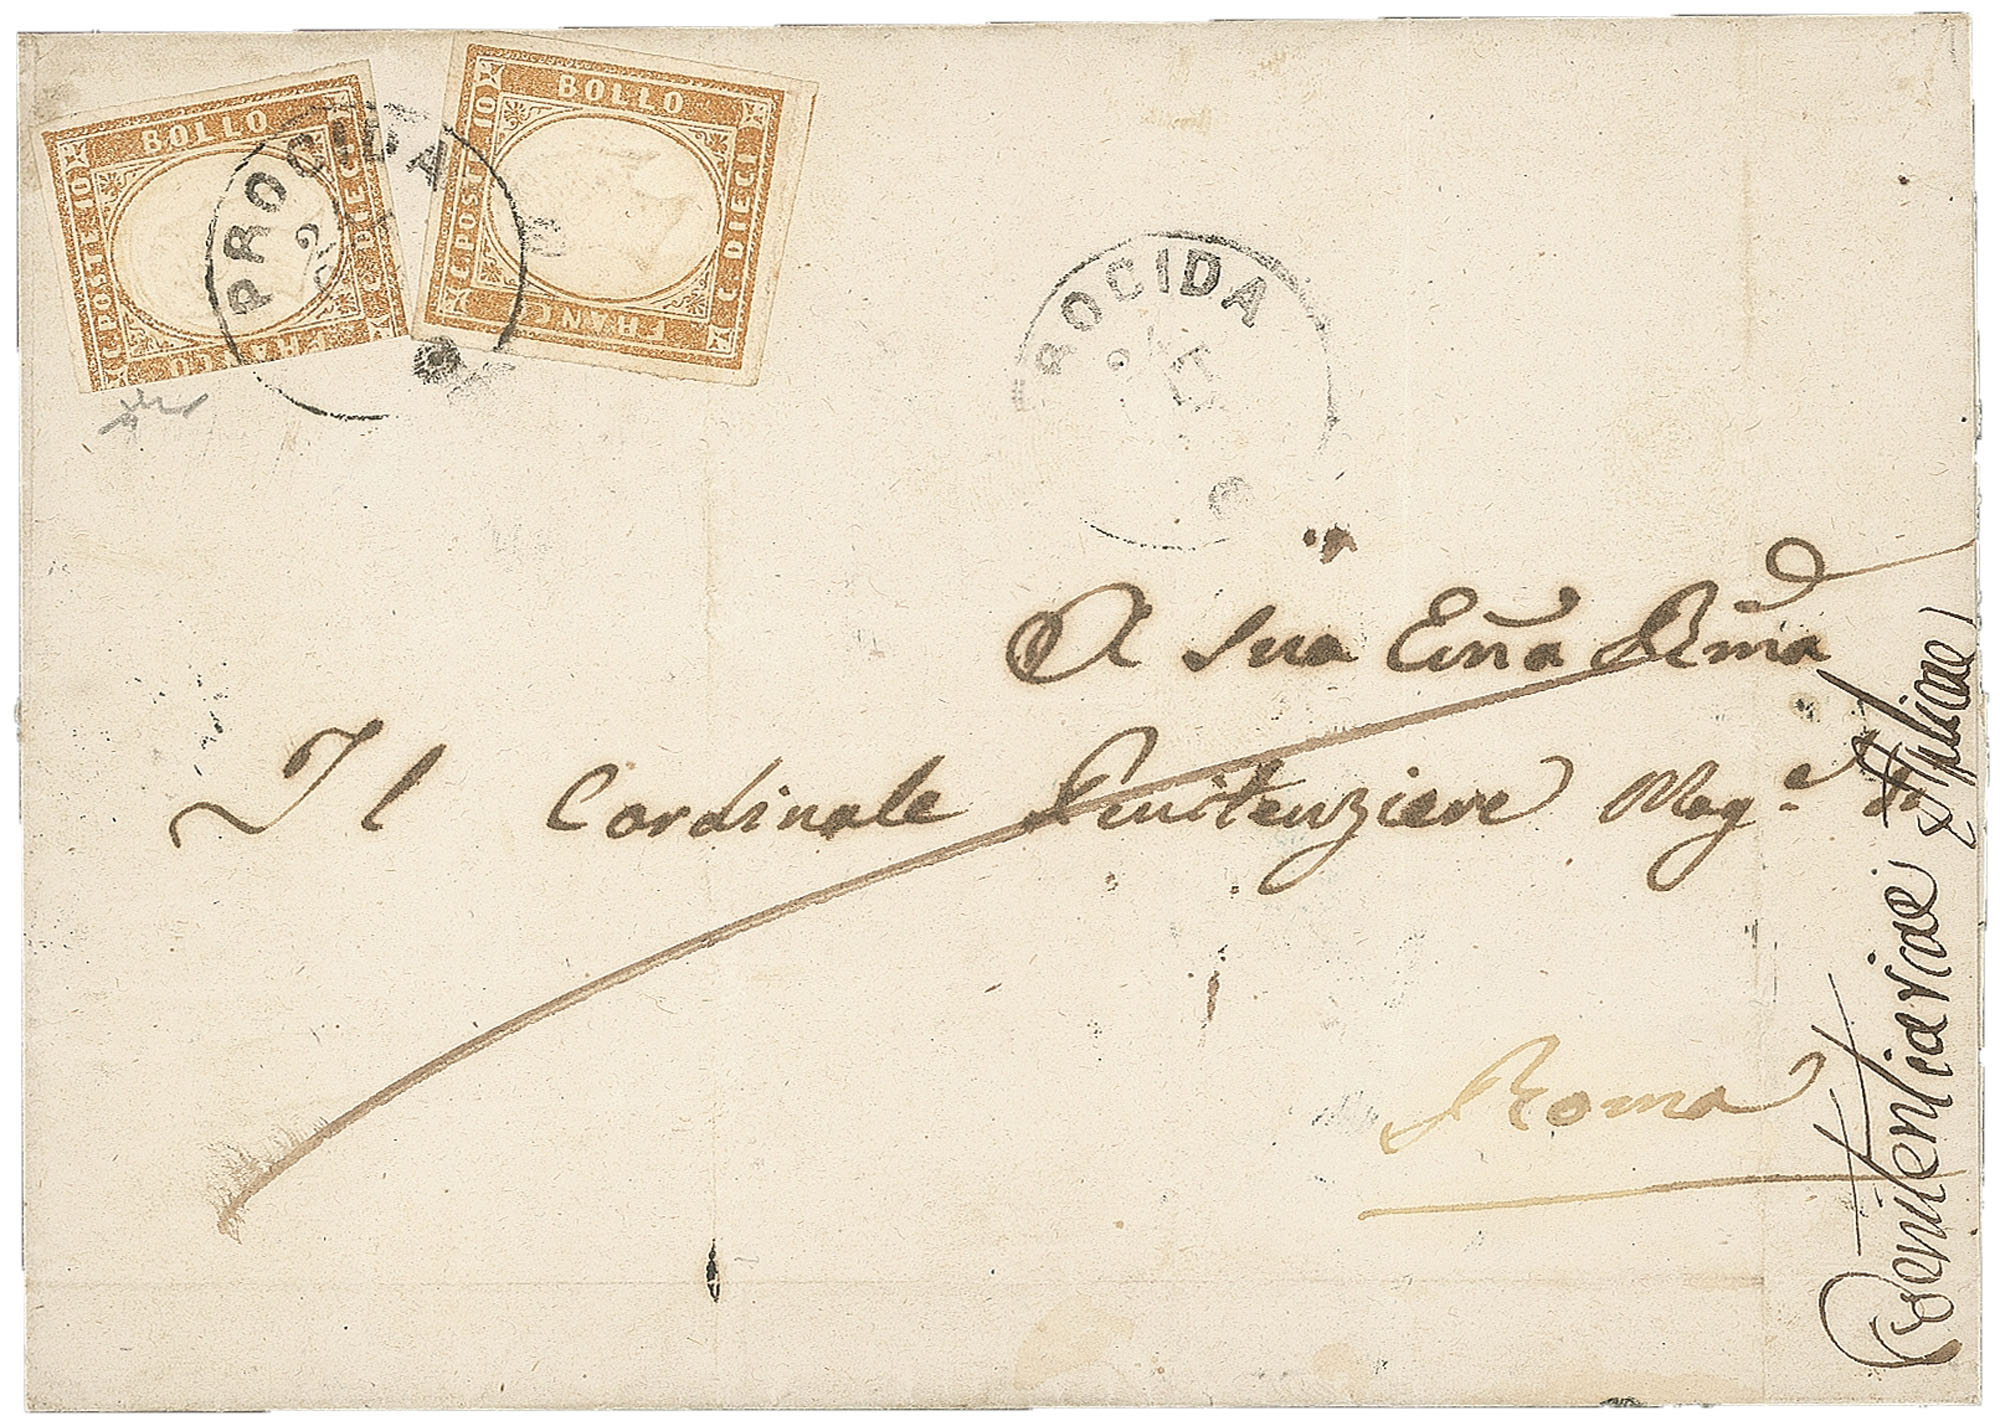 BOLLO
C. POSTE 10
C. DIECI
FRANCO
BOLLO
C. POSTE 10
C. DIECI
FRANCO
PROCIDA
PROCIDA
A Sua Em̃a Rm̃a
Il Cardinale Penitenziere Mag.e di
Roma
Penitentiariae Aplicae